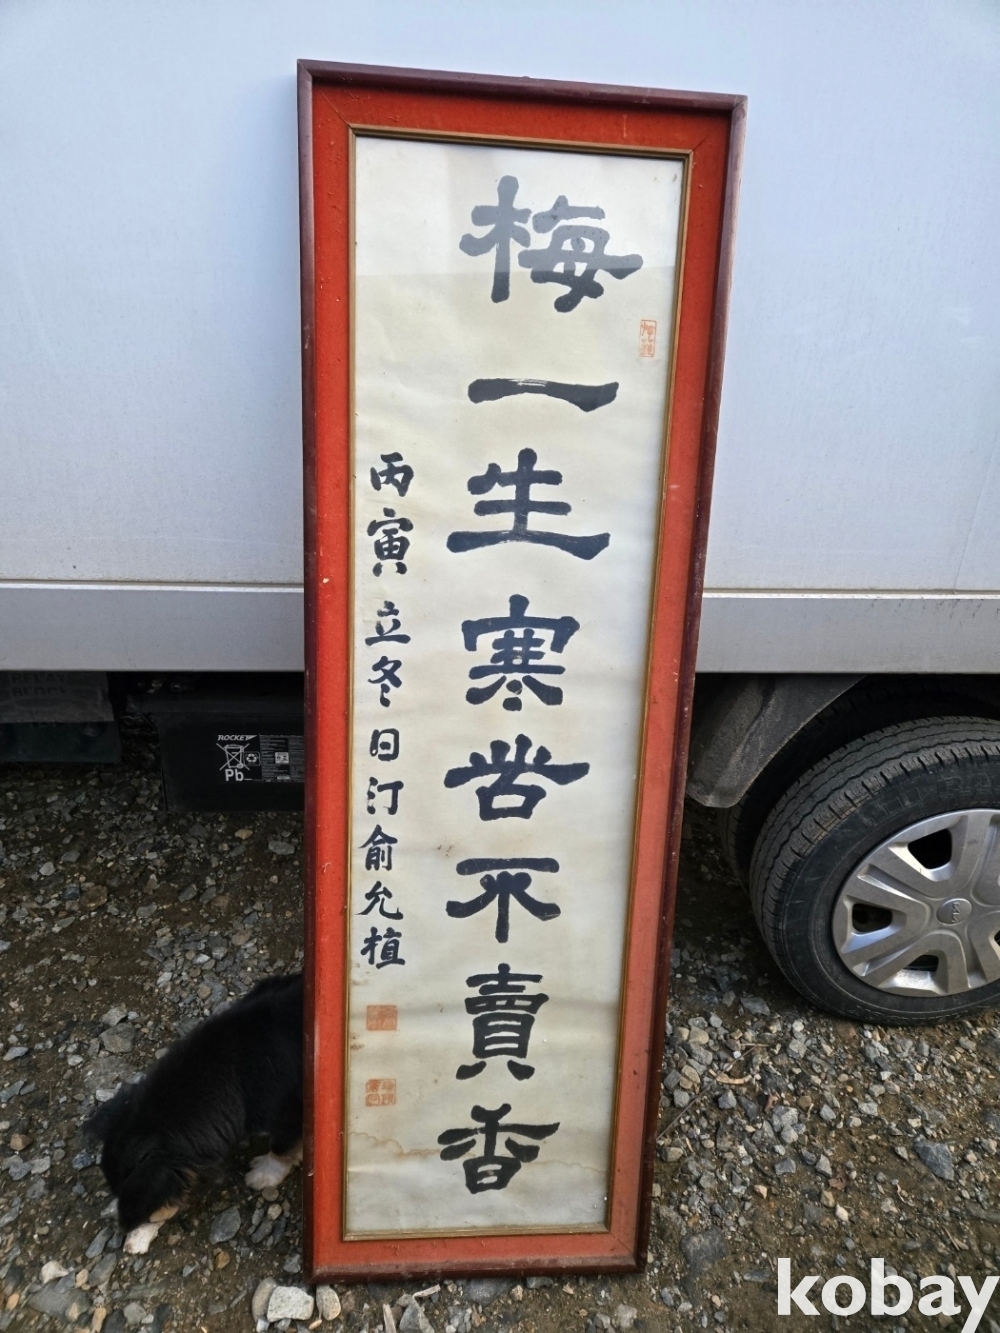 梅一生寒苦不賣香
丙寅立冬日汀俞允植
ROCKET
Pb
kobay